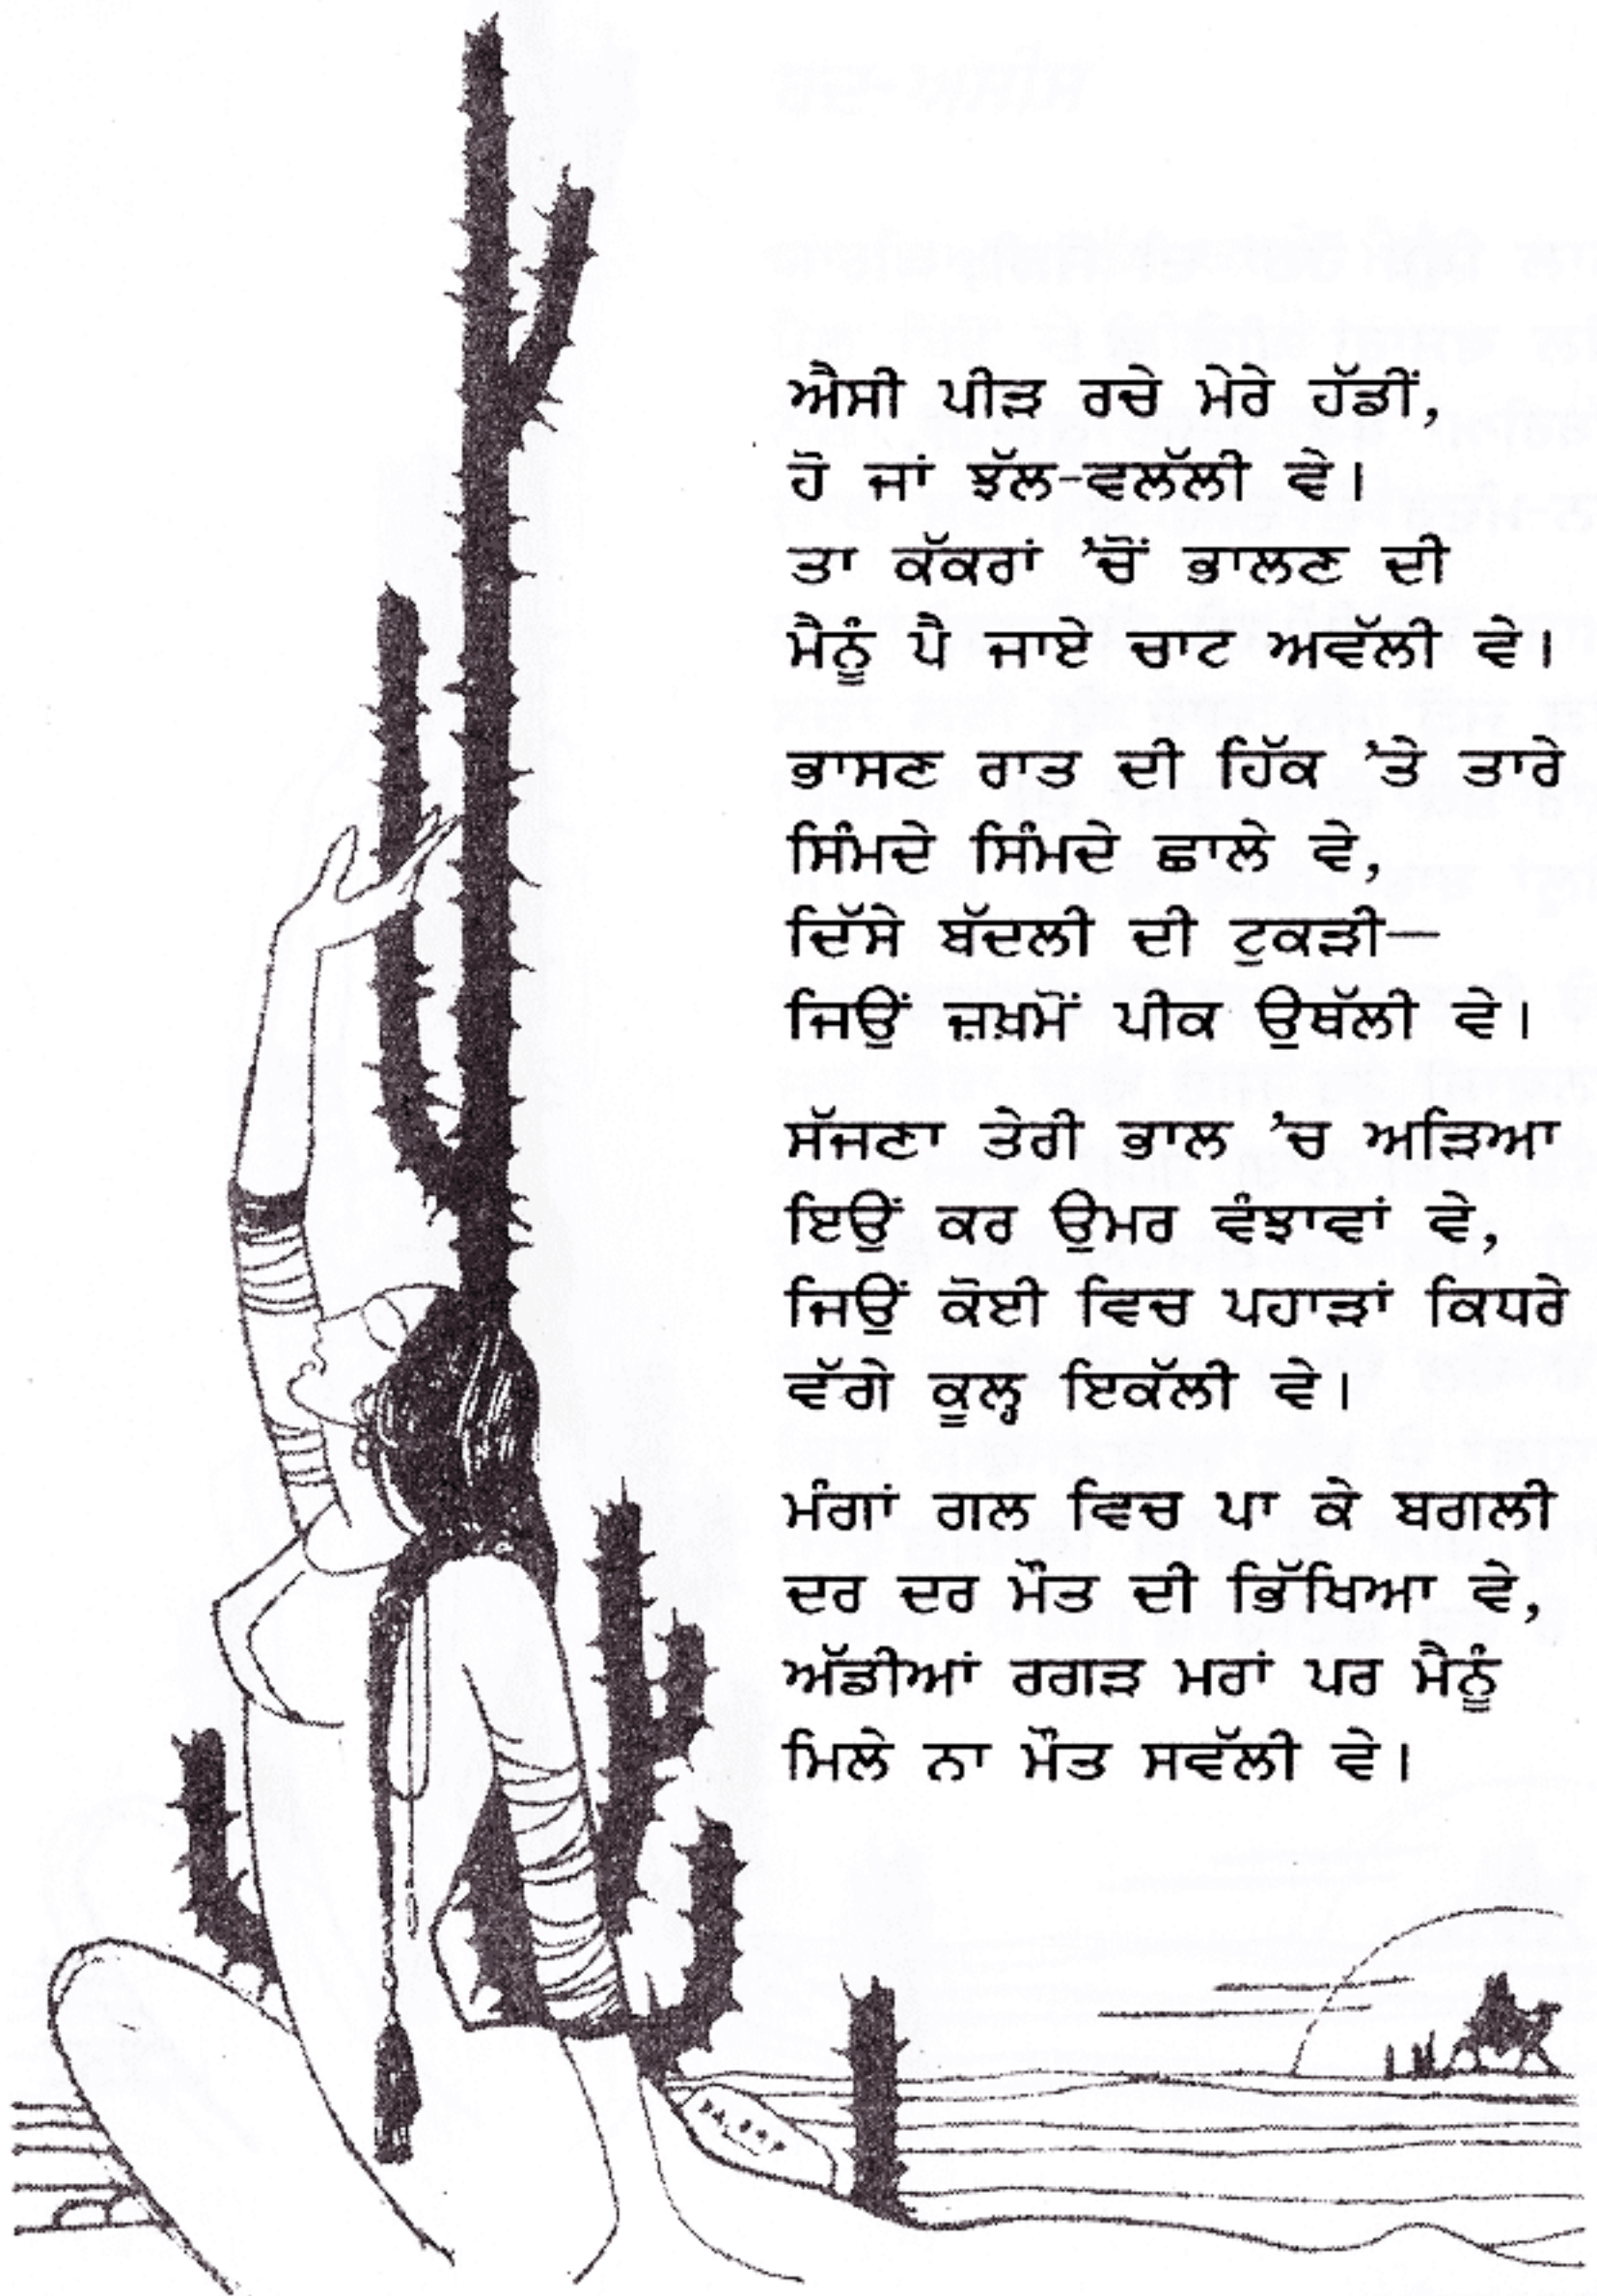 ਐਸੀ ਪੀੜ ਰਚੇ ਮੇਰੇ ਹੱਡੀਂ,
ਹੋ ਜਾਂ ਝੱਲ-ਵਲੱਲੀ ਵੇ।
ਤਾ ਕੱਕਰਾਂ ’ਚੋਂ ਭਾਲਣ ਦੀ
ਮੈਨੂੰ ਪੈ ਜਾਏ ਚਾਟ ਅਵੱਲੀ ਵੇ।
ਭਾਸਣ ਰਾਤ ਦੀ ਹਿੱਕ ’ਤੇ ਤਾਰੇ
ਸਿੰਮਦੇ ਸਿੰਮਦੇ ਛਾਲੇ ਵੇ,
ਦਿੱਸੇ ਬੱਦਲੀ ਦੀ ਟੁਕੜੀ—
ਜਿਉਂ ਜ਼ਖ਼ਮੋਂ ਪੀਕ ਉਥੱਲੀ ਵੇ।
ਸੱਜਣਾ ਤੇਰੀ ਭਾਲ ’ਚ ਅੜਿਆ
ਇਉਂ ਕਰ ਉਮਰ ਵੰਝਾਵਾਂ ਵੇ,
ਜਿਉਂ ਕੋਈ ਵਿਚ ਪਹਾੜਾਂ ਕਿਧਰੇ
ਵੱਗੇ ਕੂਲ੍ਹ ਇਕੱਲੀ ਵੇ।
ਮੰਗਾਂ ਗਲ ਵਿਚ ਪਾ ਕੇ ਬਗਲੀ
ਦਰ ਦਰ ਮੌਤ ਦੀ ਭਿੱਖਿਆ ਵੇ,
ਅੱਡੀਆਂ ਰਗੜ ਮਰਾਂ ਪਰ ਮੈਨੂੰ
ਮਿਲੇ ਨਾ ਮੌਤ ਸਵੱਲੀ ਵੇ।